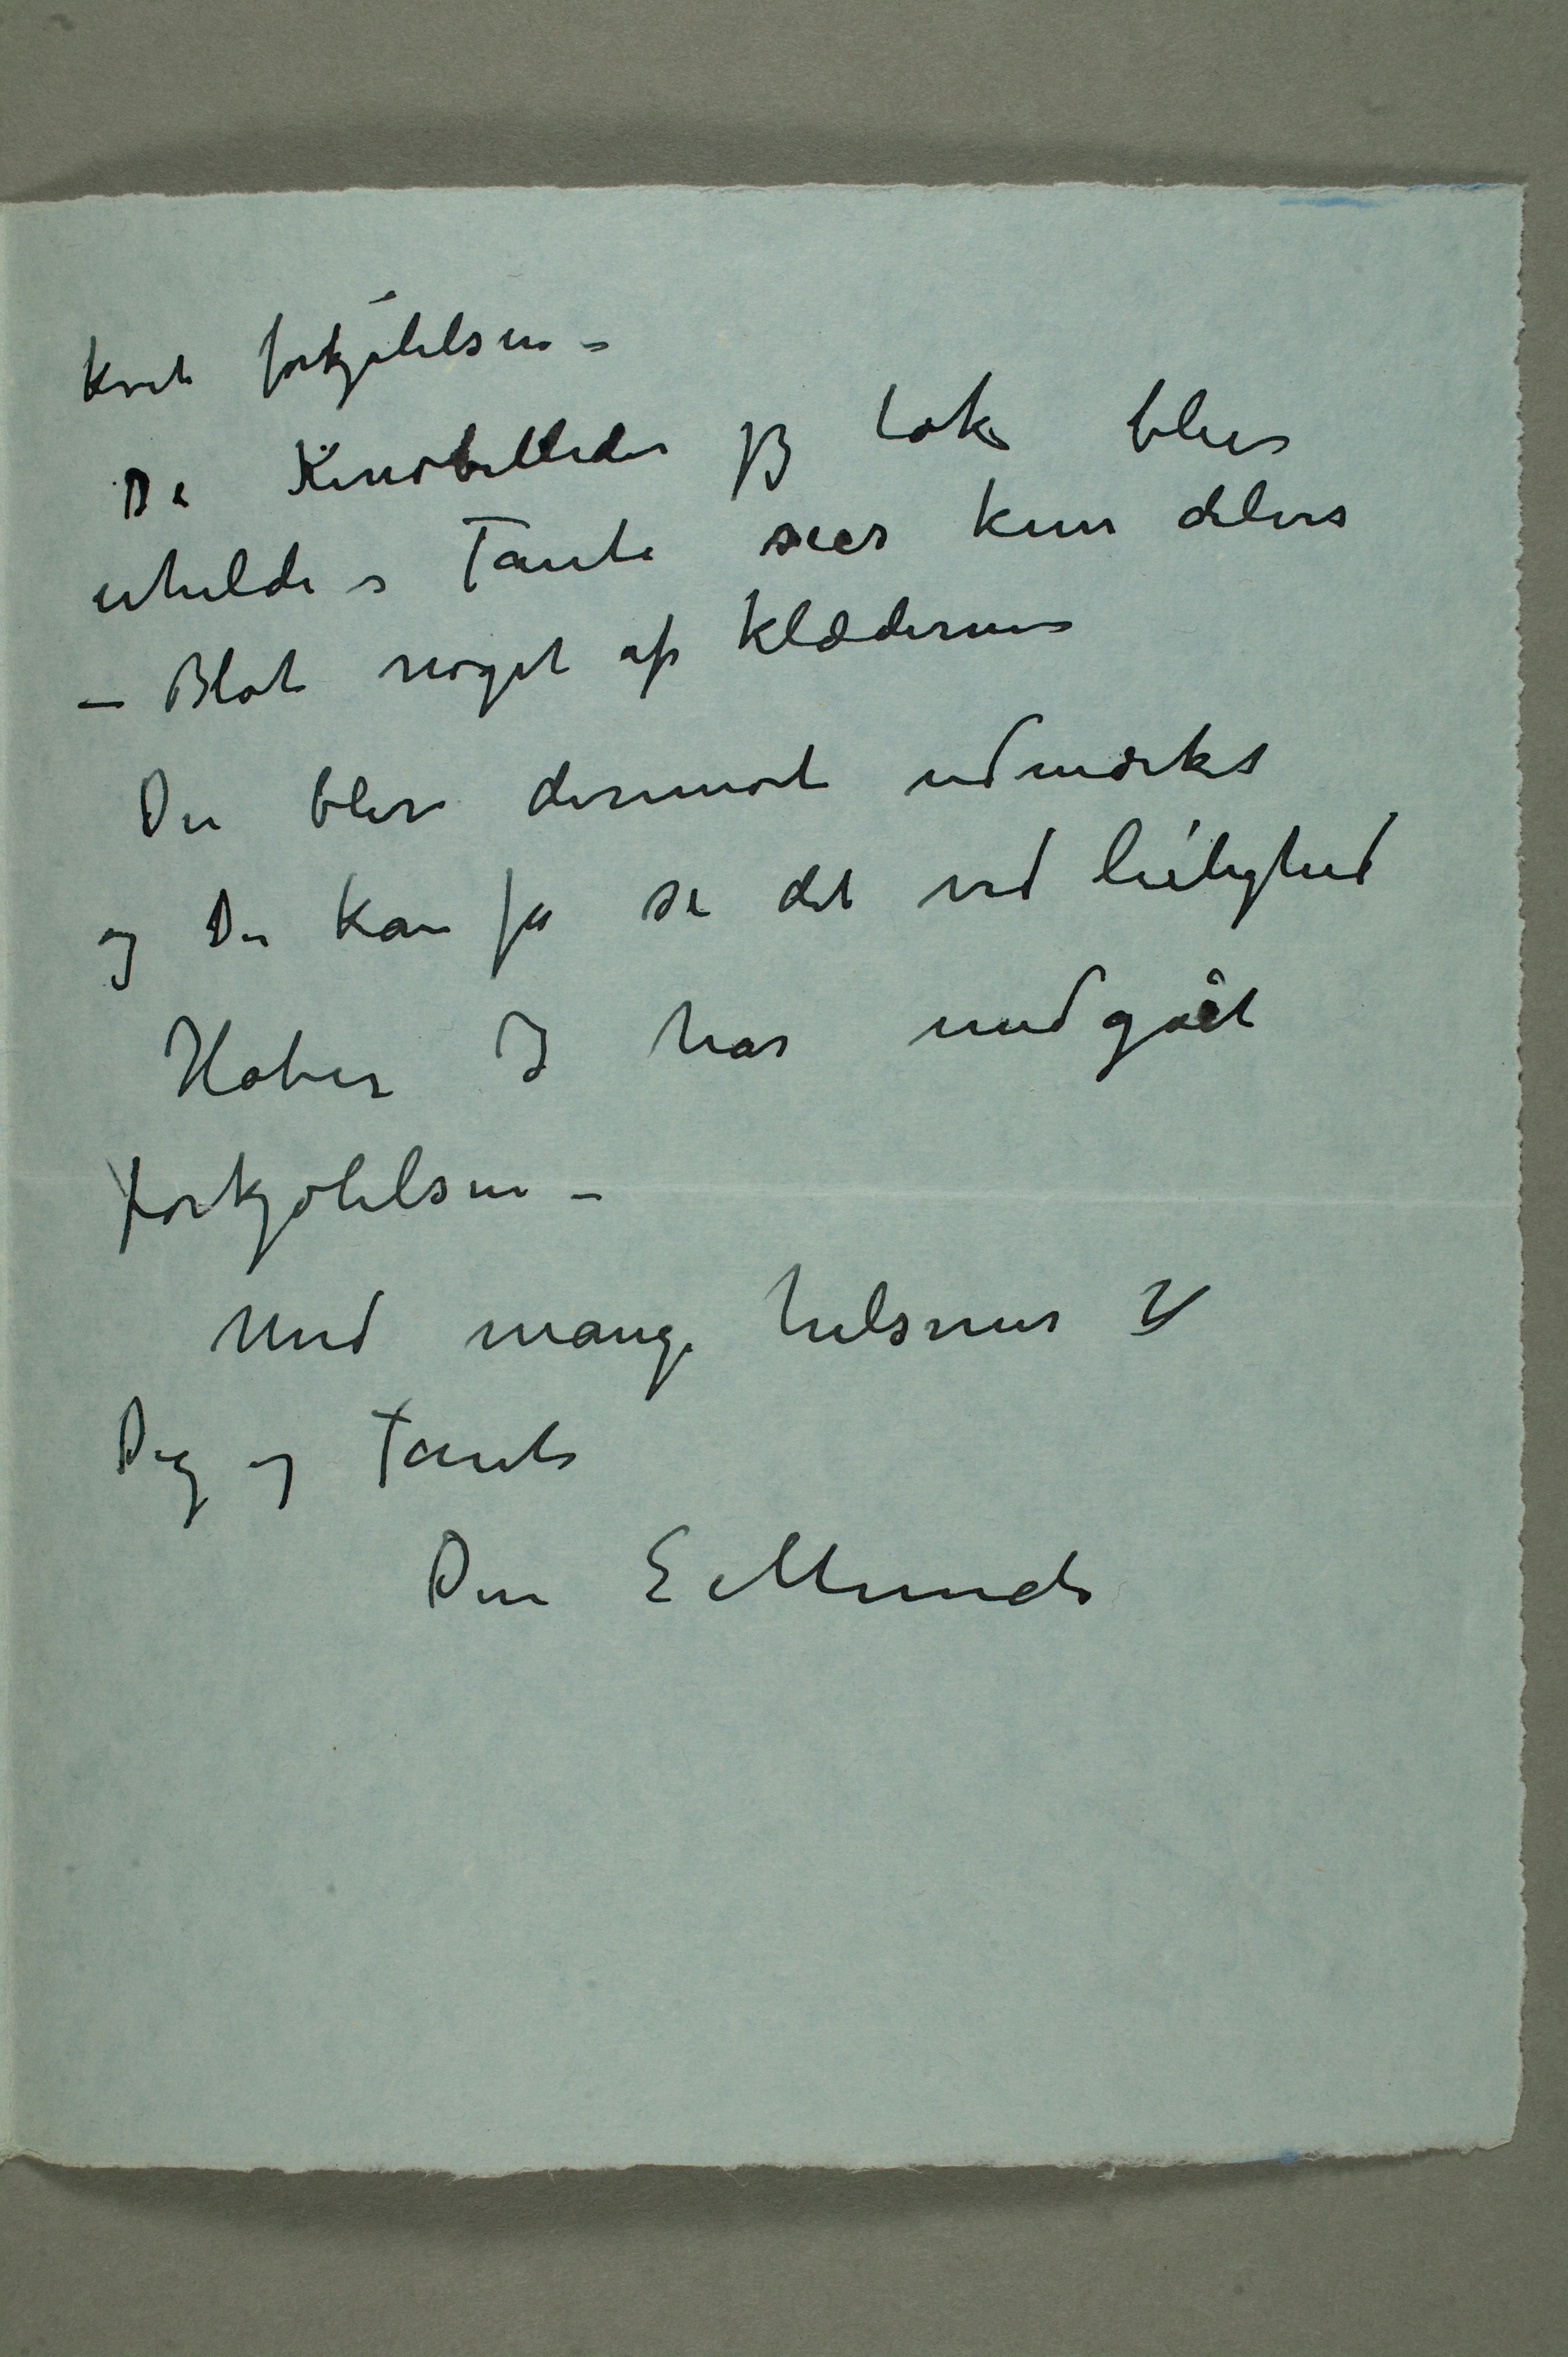 kvit forkjølelsen –
De Kinobilleder jeg tok blev
uheldi s Tante sees kun delvis
– Blot noget af klæderne
Du blev derimot udmærket
og Du kan få se det ved leilighed
Håber I har undgået
forkjølelsen –
Med mange hilsener til
Dig og Tante
Din E Munch